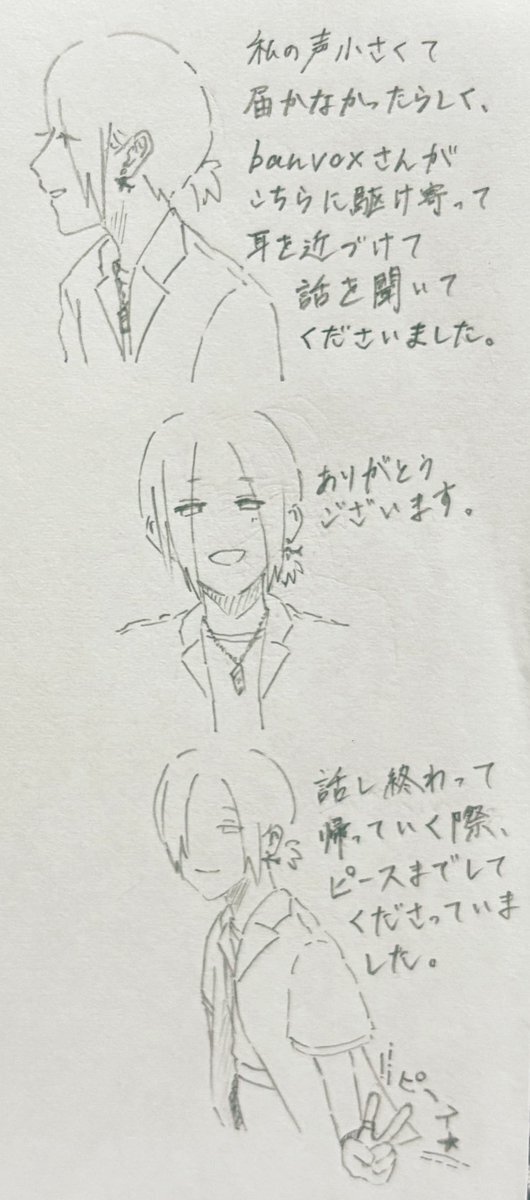 私の声小さくて
届かなかったらしく、
banvoxさんが
こちらに駆け寄って
耳を近づけて
話を聞いて
くださいました。
ありがとう
ございます。
話し終わって
帰っていく際、
ピースまでして
くださっていま
した。
ピース